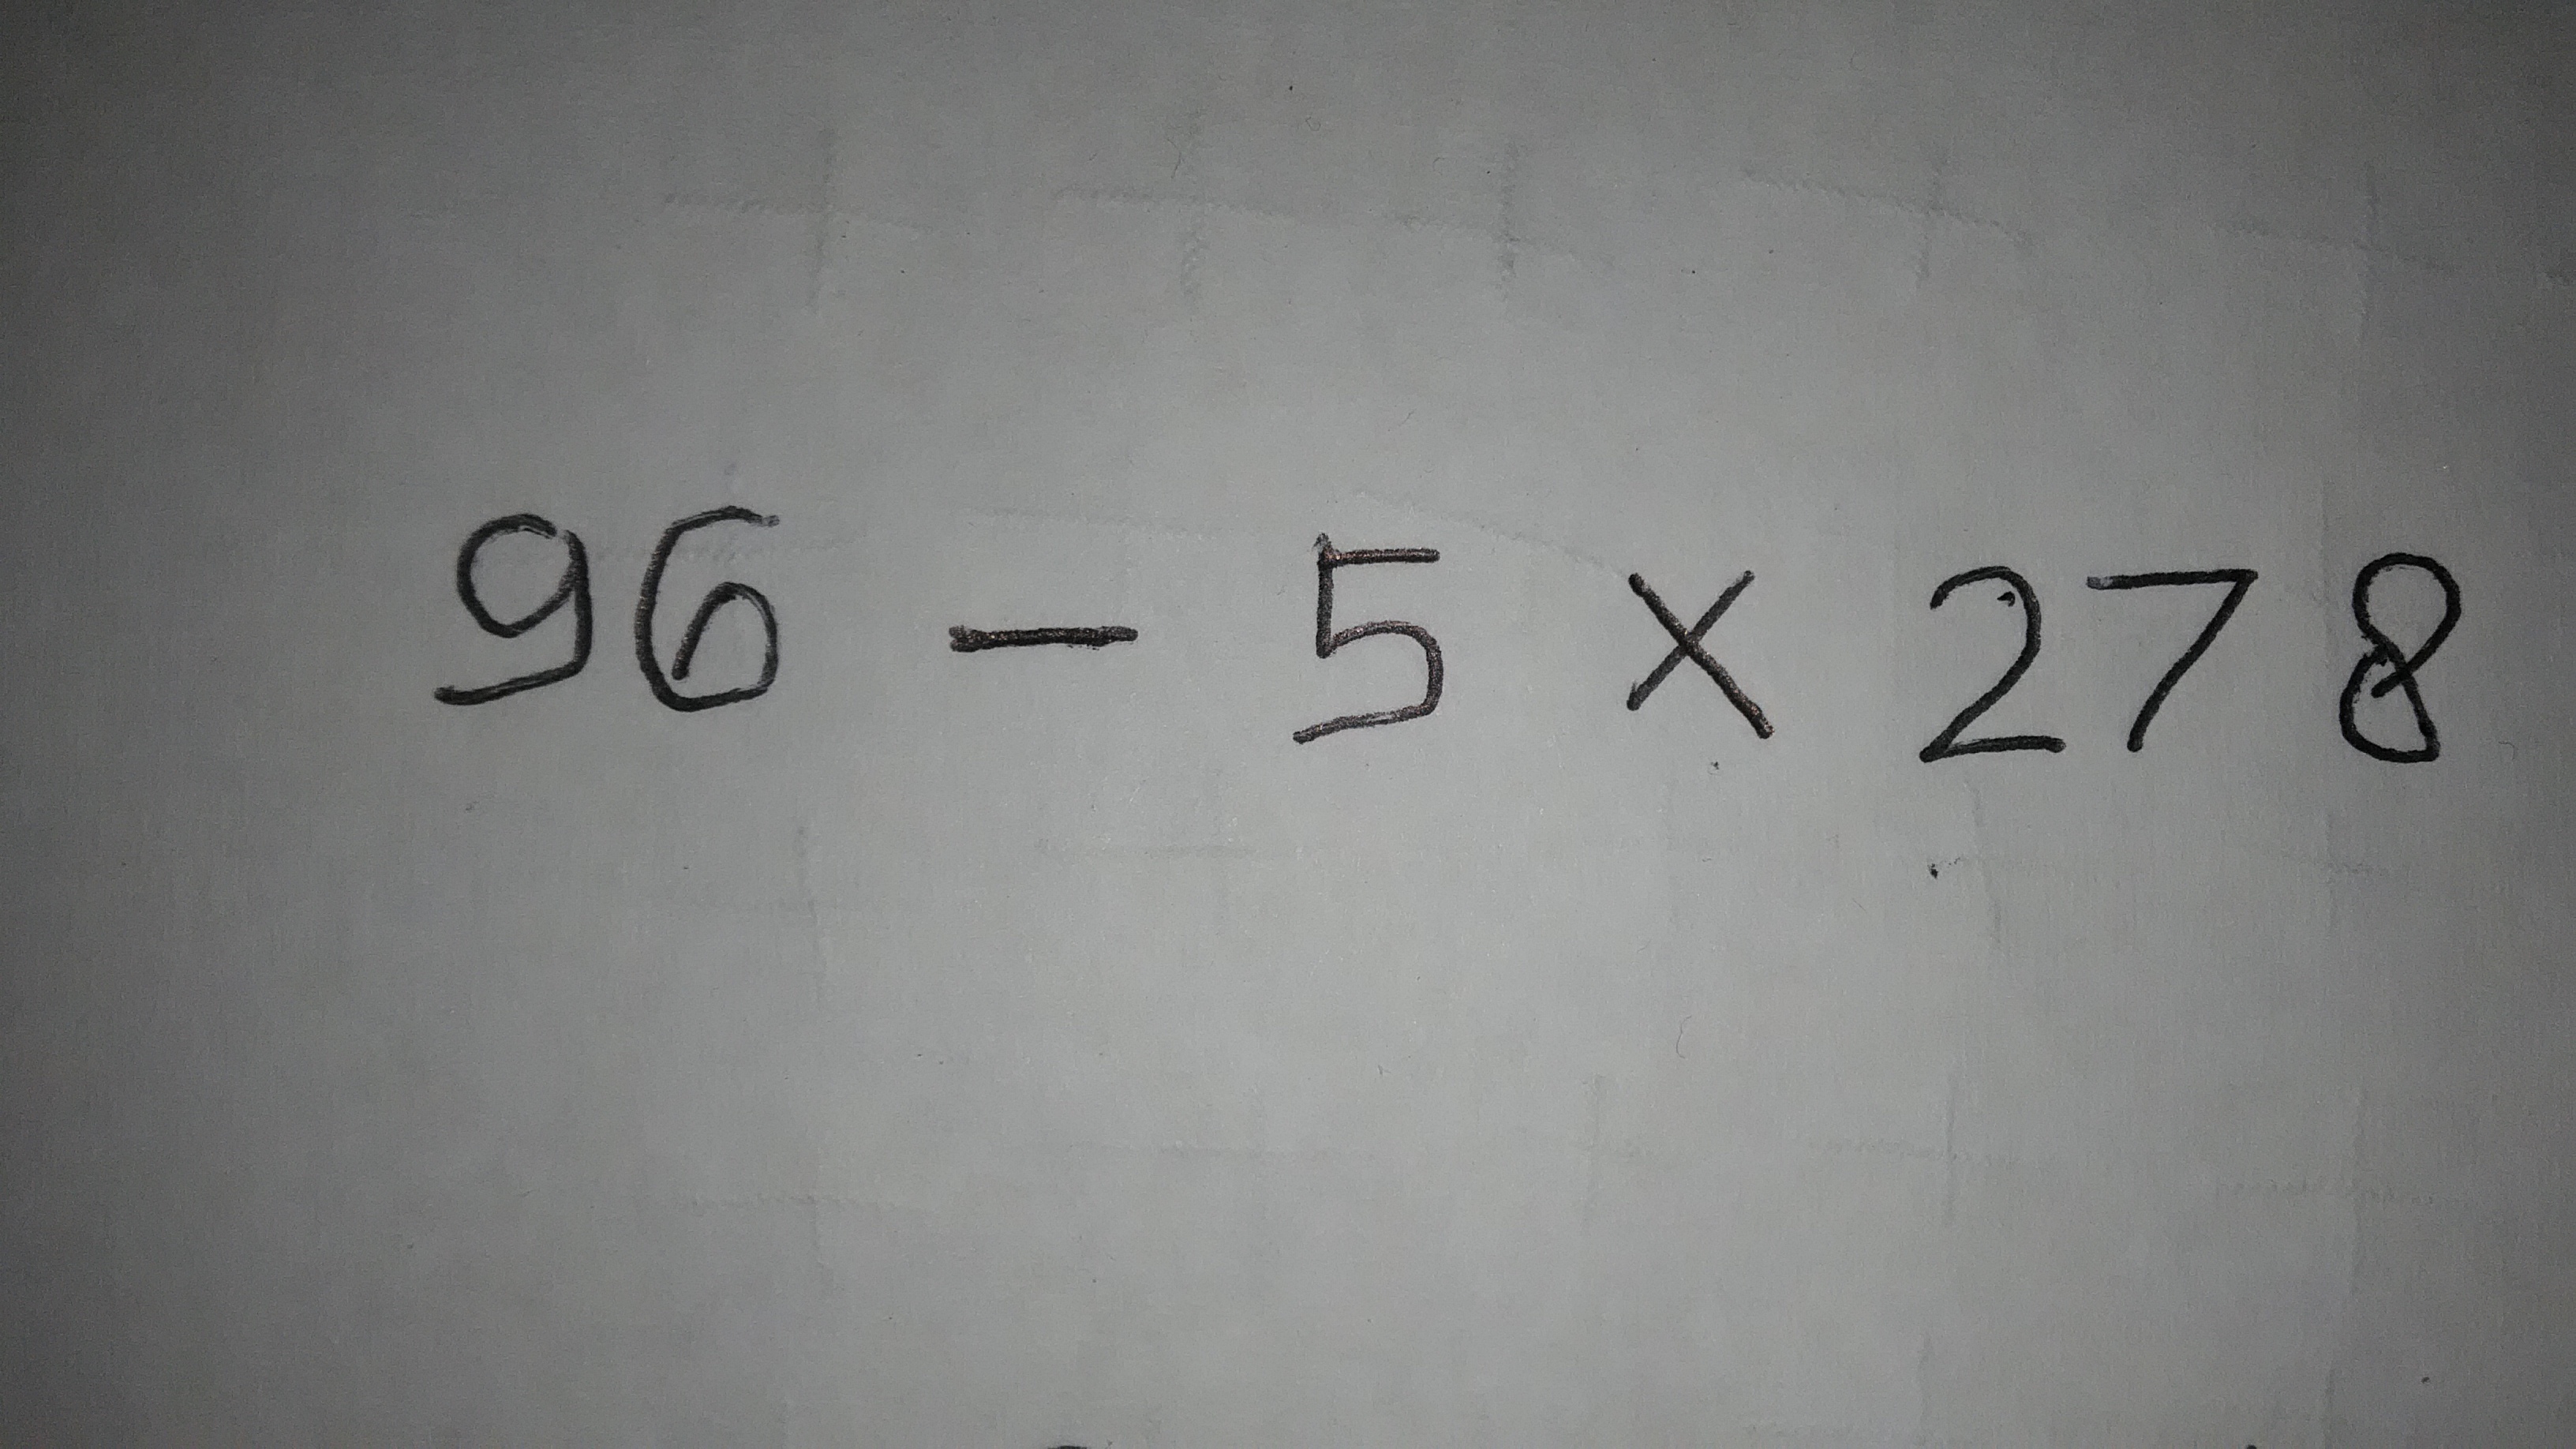 96 - 5 × 278